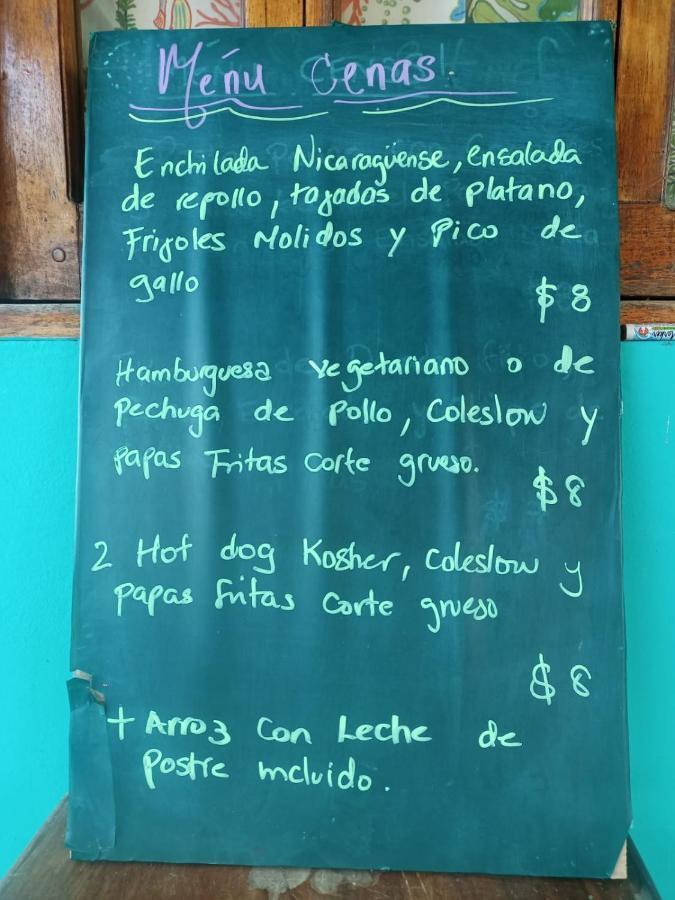 Menú Cenas
Enchilada Nicaragüense, ensalada
de repollo, tajadas de platano,
Frijoles Molidos y Pico de
gallo
$ 8
Hamburguesa vegetariano o de
pechuga de pollo, Coleslow y
papas Fritas corte grueso.
$ 8
2 Hot dog Kosher, Coleslow y
papas fritas corte grueso
$ 8
+ Arroz con Leche de
postre incluido.